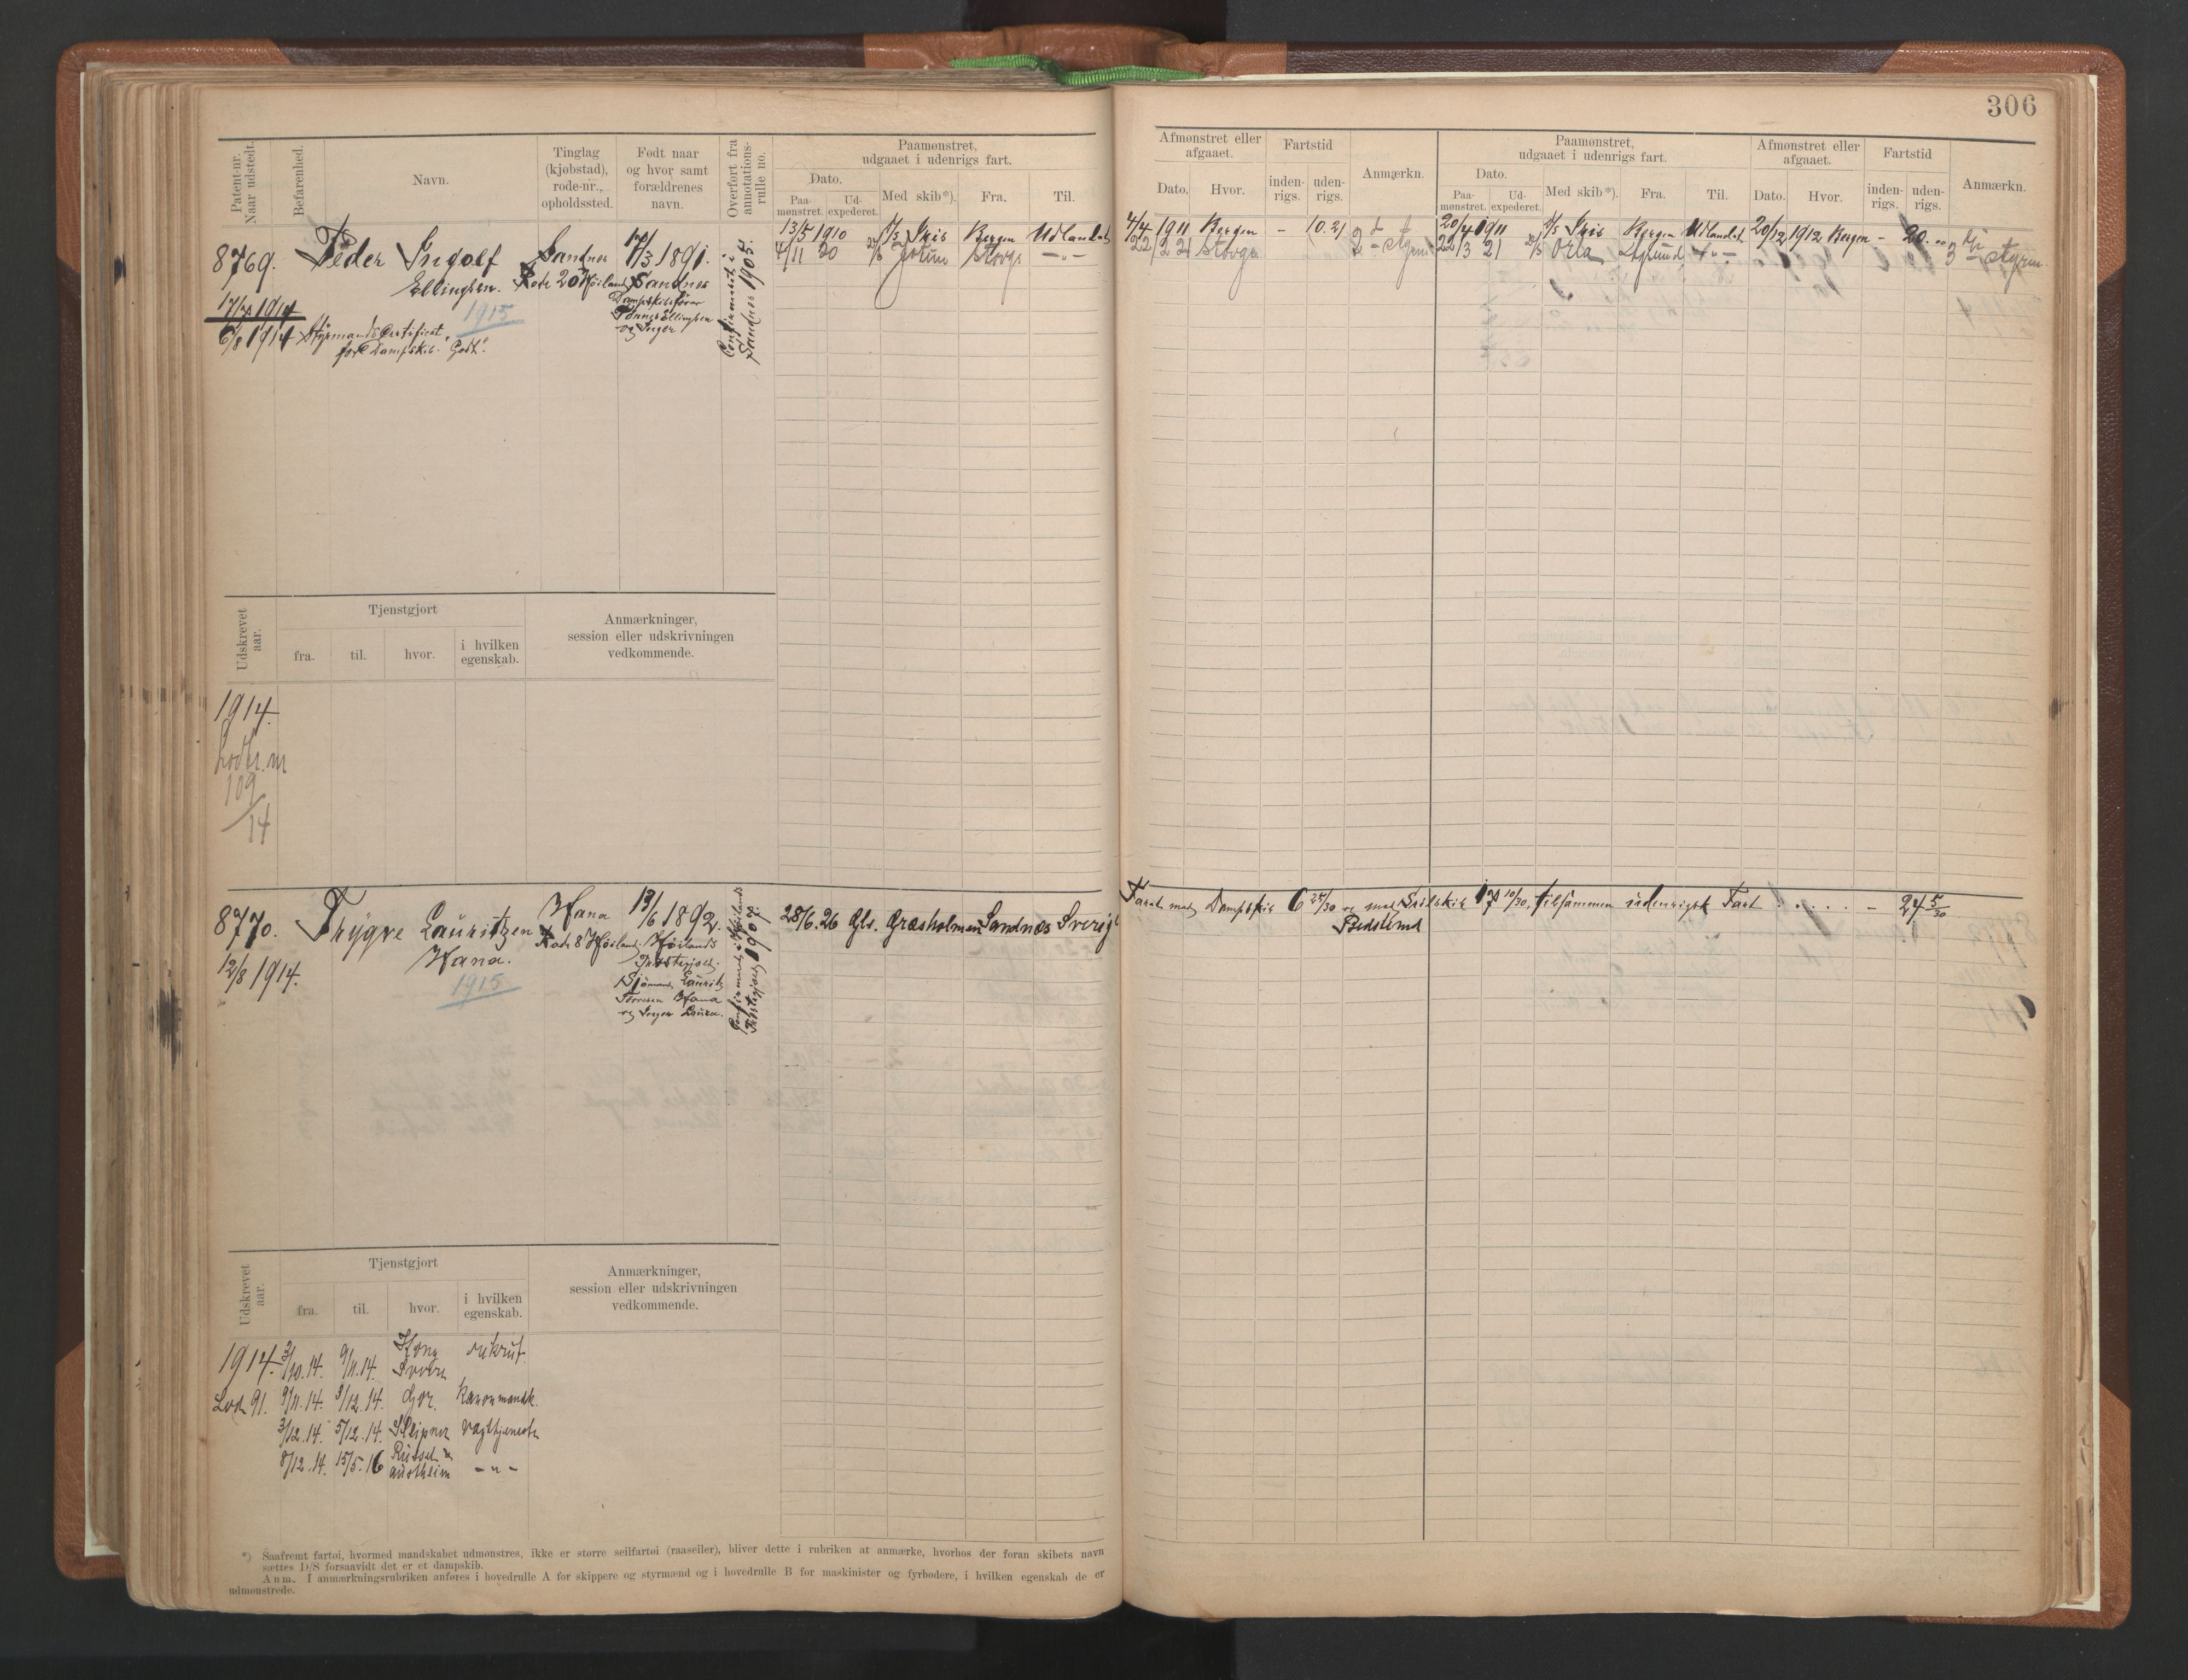 306
Patent-nr.
Naar udstedt.
Befarenhed.
Navn.
Tinglag
(kjøbstad),
rode-nr.,
opholdssted.
Født naar
og hvor samt
forældrenes
navn.
Overført fra
annotations-
rulle no.
Paamønstret,
udgaaet i udenrigs fart.
Dato.
Paa-
mønstret.
Ud-
expederet.
Med skib*).
Fra.
Til.
Afmønstret eller
afgaaet.
Dato.
Hvor.
Fartstid
inden-
rigs.
uden-
rigs.
Anmærkn.
Paamønstret,
udgaaet i udenrigs fart.
Dato.
Paa-
mønstret.
Ud-
expederet.
Med skib*).
Fra.
Til.
Afmønstret eller
afgaaet.
Dato.
Hvor.
Fartstid
inden-
rigs.
uden-
rigs.
Anmærkn.
8769.
Peder Ingolf
Ellingsen.
1915
17/7 1914
6/8 1914 Styrmandscertifikat
for Dampskib. "Godt".
Sandnes
Rode 20 Høiland
17/3 1891.
Sandnes
Dampskibsfører
Ellingsen
og Inger
Confirmeret i
Sandnes 1905.
13/5 1910 D/S Iris Bergen Udlandet
4/11 20 Jotun Stavgr -"-
4/4 1911 Bergen - 10.21
22/2 21 Stavgr 2d Styrm
20/4 1911 D/S Iris Bergen Udlandet 20/12 1912 Bergen - 20.
22/3 21 Orla -"- Styrm
Udskrevet
aar.
Tjenstgjort
fra.
til.
hvor.
i hvilken
egenskab.
Anmærkninger,
session eller udskrivningen
vedkommende.
1914.
Lodtr. nr
109
/14
8770.
12/8 1914.
Trygve Lauritzen
Hana.
1915
Hana
Rode 8 Høiland.
13/6 1892.
Høilands
Præstegjeld.
Sjømand Lauritz
Hana
og Inger Laura.
Confirmeret i Høilands
Præstegjeld 1907.
28/6.26 Gls. Græsholmen Sandnes Sverige
Faret med Dampskib 6 24/30 og med Seilskib 17 11/30, tilsammen udenrigsk Fart . . . . . - 24 5/30
Bedstemd
Udskrevet
aar.
Tjenstgjort
fra.
til.
hvor.
i hvilken
egenskab.
Anmærkninger,
session eller udskrivningen
vedkommende.
1914. 3/10.14. 9/11.14. Kong
Sverre rekrut
Lod 91. 9/11.14. 3/12.14. Gor. kanonmandsk.
3/12.14. 5/12.14. Sleipner vagttjeneste
8/12.14. 15/5.16
austheim -"-
*) Saafremt fartøi, hvormed mandskabet udmønstres, ikke er større seilfartøi (raaseiler), bliver dette i rubriken at anmærke, hvorhos der foran skibets navn
sættes D/S forsaavidt det er et dampskib.
Anm. I anmærkningsrubriken anføres i hovedrulle A for skippere og styrmænd og i hovedrulle B for maskinister og fyrbødere, i hvilken egenskab de er
udmønstrede.